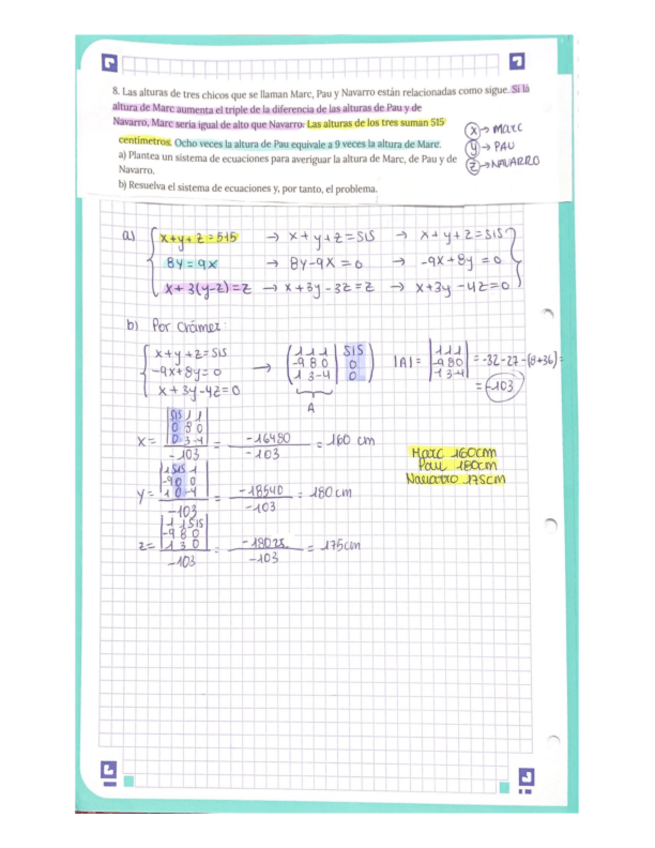 8. Las alturas de tres chicos que se llaman Marc, Pau y Navarro están relacionadas como sigue. Si la
altura de Marc aumenta el triple de la diferencia de las alturas de Pau y de
Navarro, Marc sería igual de alto que Navarro. Las alturas de los tres suman 515
centímetros. Ocho veces la altura de Pau equivale a 9 veces la altura de Marc.
a) Plantea un sistema de ecuaciones para averiguar la altura de Marc, de Pau y de
Navarro.
b) Resuelva el sistema de ecuaciones y, por tanto, el problema.
x → Marc
y → PAU
z → NAVARRO
a) x+y+z=515 → x+y+z=515 → x+y+z=515
8y=9x → 8y-9x=0 → -9x+8y=0
x+3(y-z)=z → x+3y-3z=z → x+3y-4z=0
b) Por Crámer:
x+y+z=515
-9x+8y=0
x+3y-4z=0
→
1 1 1 | 515
-9 8 0 | 0
1 3 -4 | 0
A
|A| =
1 1 1
-9 8 0
1 3 -4
= -32-27-(8+36) =
= -103
x =
515 1 1
0 8 0
0 3 -4
-103
= -16480 / -103 = 160 cm
y =
1 515 1
-9 0 0
1 0 -4
-103
= -18540 / -103 = 180 cm
z =
1 1 515
-9 8 0
1 3 0
-103
= -18025 / -103 = 175cm
Marc 160cm
Pau 180cm
Navarro 175cm